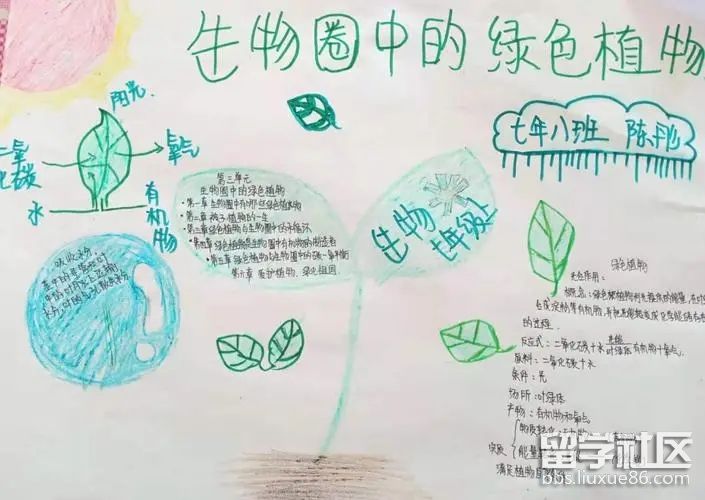 生物圈中的绿色植物
七年八班 陈
阳光
二氧化碳
氧气
水
有机物
第三单元
生物圈中的绿色植物
第一章 生物圈中有哪些绿色植物
第二章 被子植物的一生
第三章 绿色植物与生物圈的水循环
第四章 绿色植物是生物圈中有机物的制造者
第五章 绿色植物与生物圈中的碳-氧平衡
第六章 爱护植物,绿化祖国
生物
七年级上
绿色植物
光合作用:
概念:绿色植物利用提供的能量,在
合成淀粉等有机物,并把光能转变成化学能储存在
的过程.
反应式:二氧化碳+水 光能 叶绿体 有机物+氧气
原料:二氧化碳+水
条件:光
场所:叶绿体
产物:有机物和氧气
物质转化:
实质
能量
满足植物自
留学社区
bbs.liuxue86.com